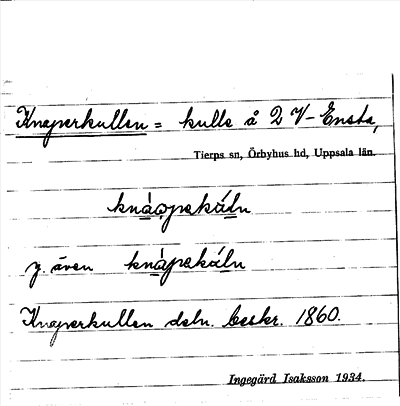 Knaperkullen = kulle å 2 V-Ensta,
Tierps sn, Örbyhus hd, Uppsala län.
knàpekáln
y. även knàpekáln
Knaperkullen deln. beskr. 1860.
Ingegärd Isaksson 1934.